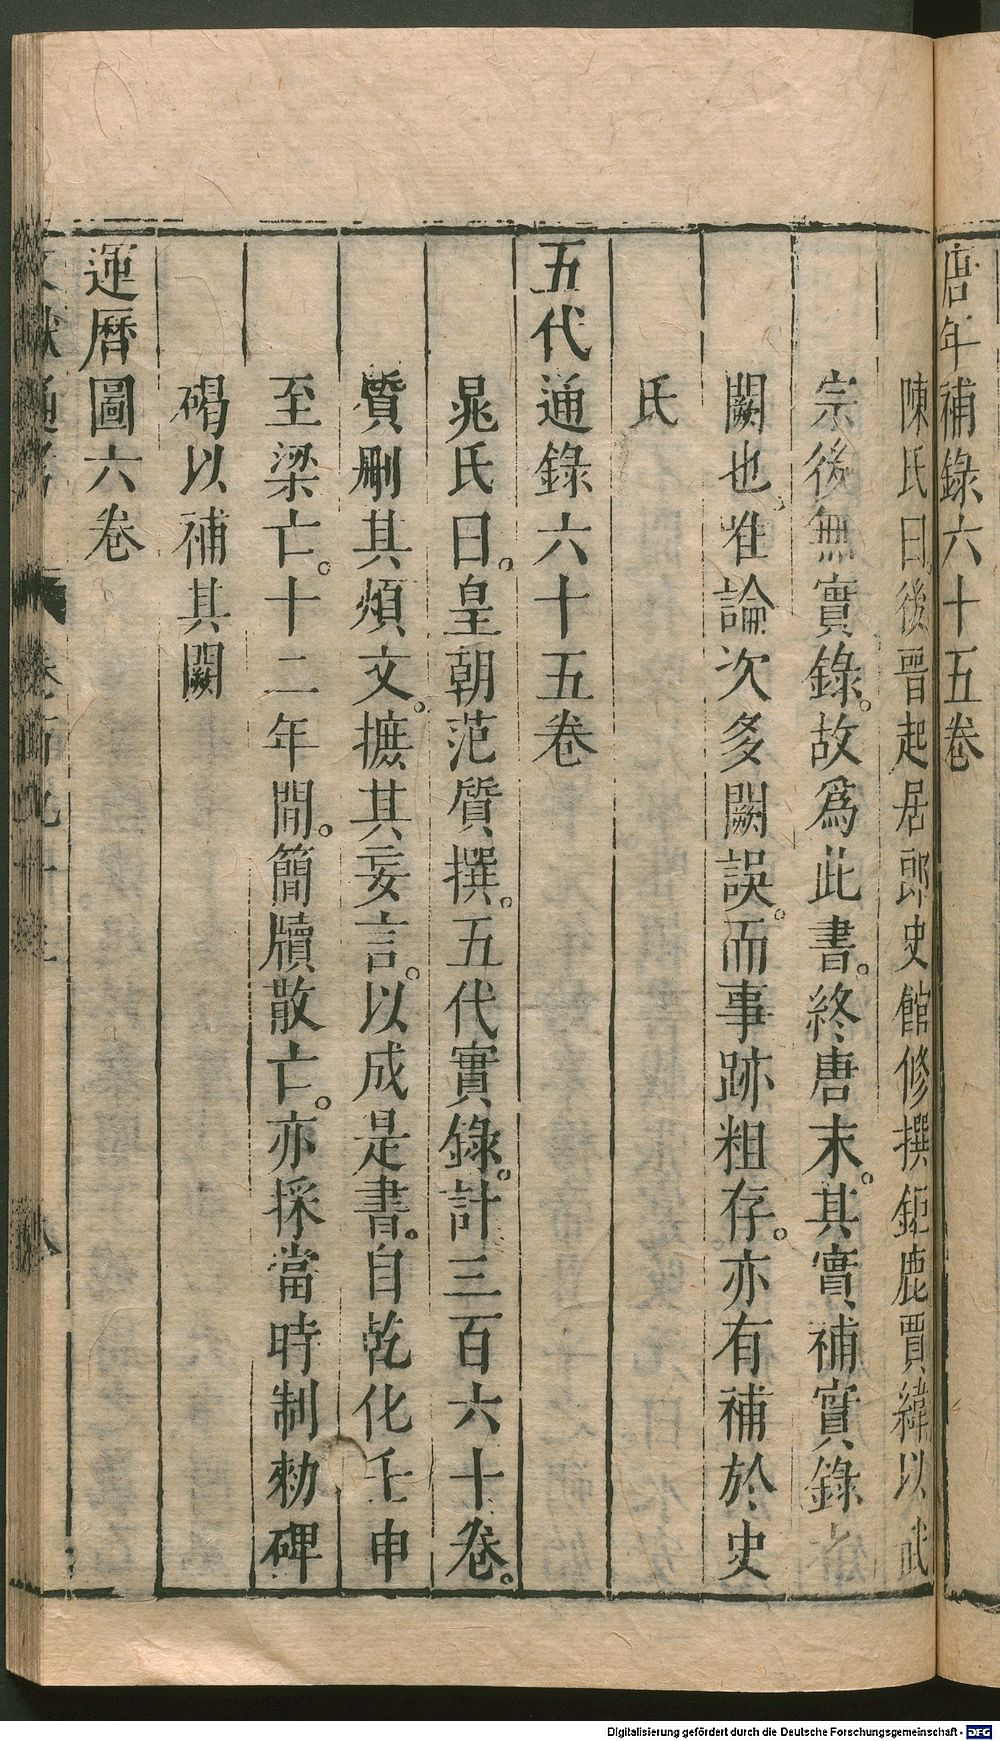 唐年補錄六十五卷
陳氏曰後晉起居郎史館修撰鉅鹿賈緯以武
宗後無實錄。故爲此書。終唐末。其實補實錄之
闕也、惟論次多闕誤。而事跡粗存。亦有補於史
氏
五代通錄六十五卷
晁氏曰。皇朝范質撰。五代實錄。計三百六十卷。
質刪其煩文。摭其妄言。以成是書。自乾化壬申
至梁亡。十二年間。簡牘散亡。亦採當時制勅碑
碣以補其闕
運曆圖六卷
Digitalisierung gefördert durch die Deutsche Forschungsgemeinschaft - DFG